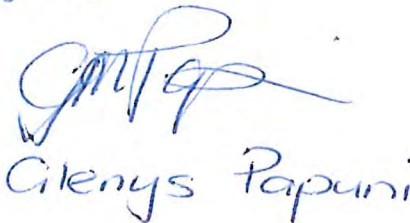 Glenys Papuni